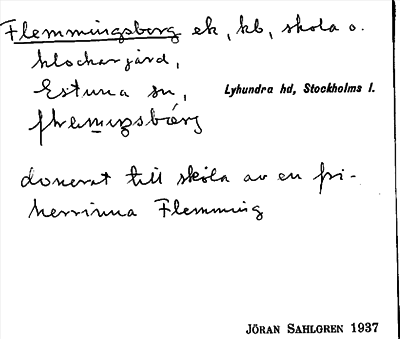 Flemmingsberg ek, kb, skola o.
klockargård,
Estuna sn, Lyhundra hd, Stockholms l.
donerat till skola av en fri-
herrinna Flemming
JÖRAN SAHLGREN 1937